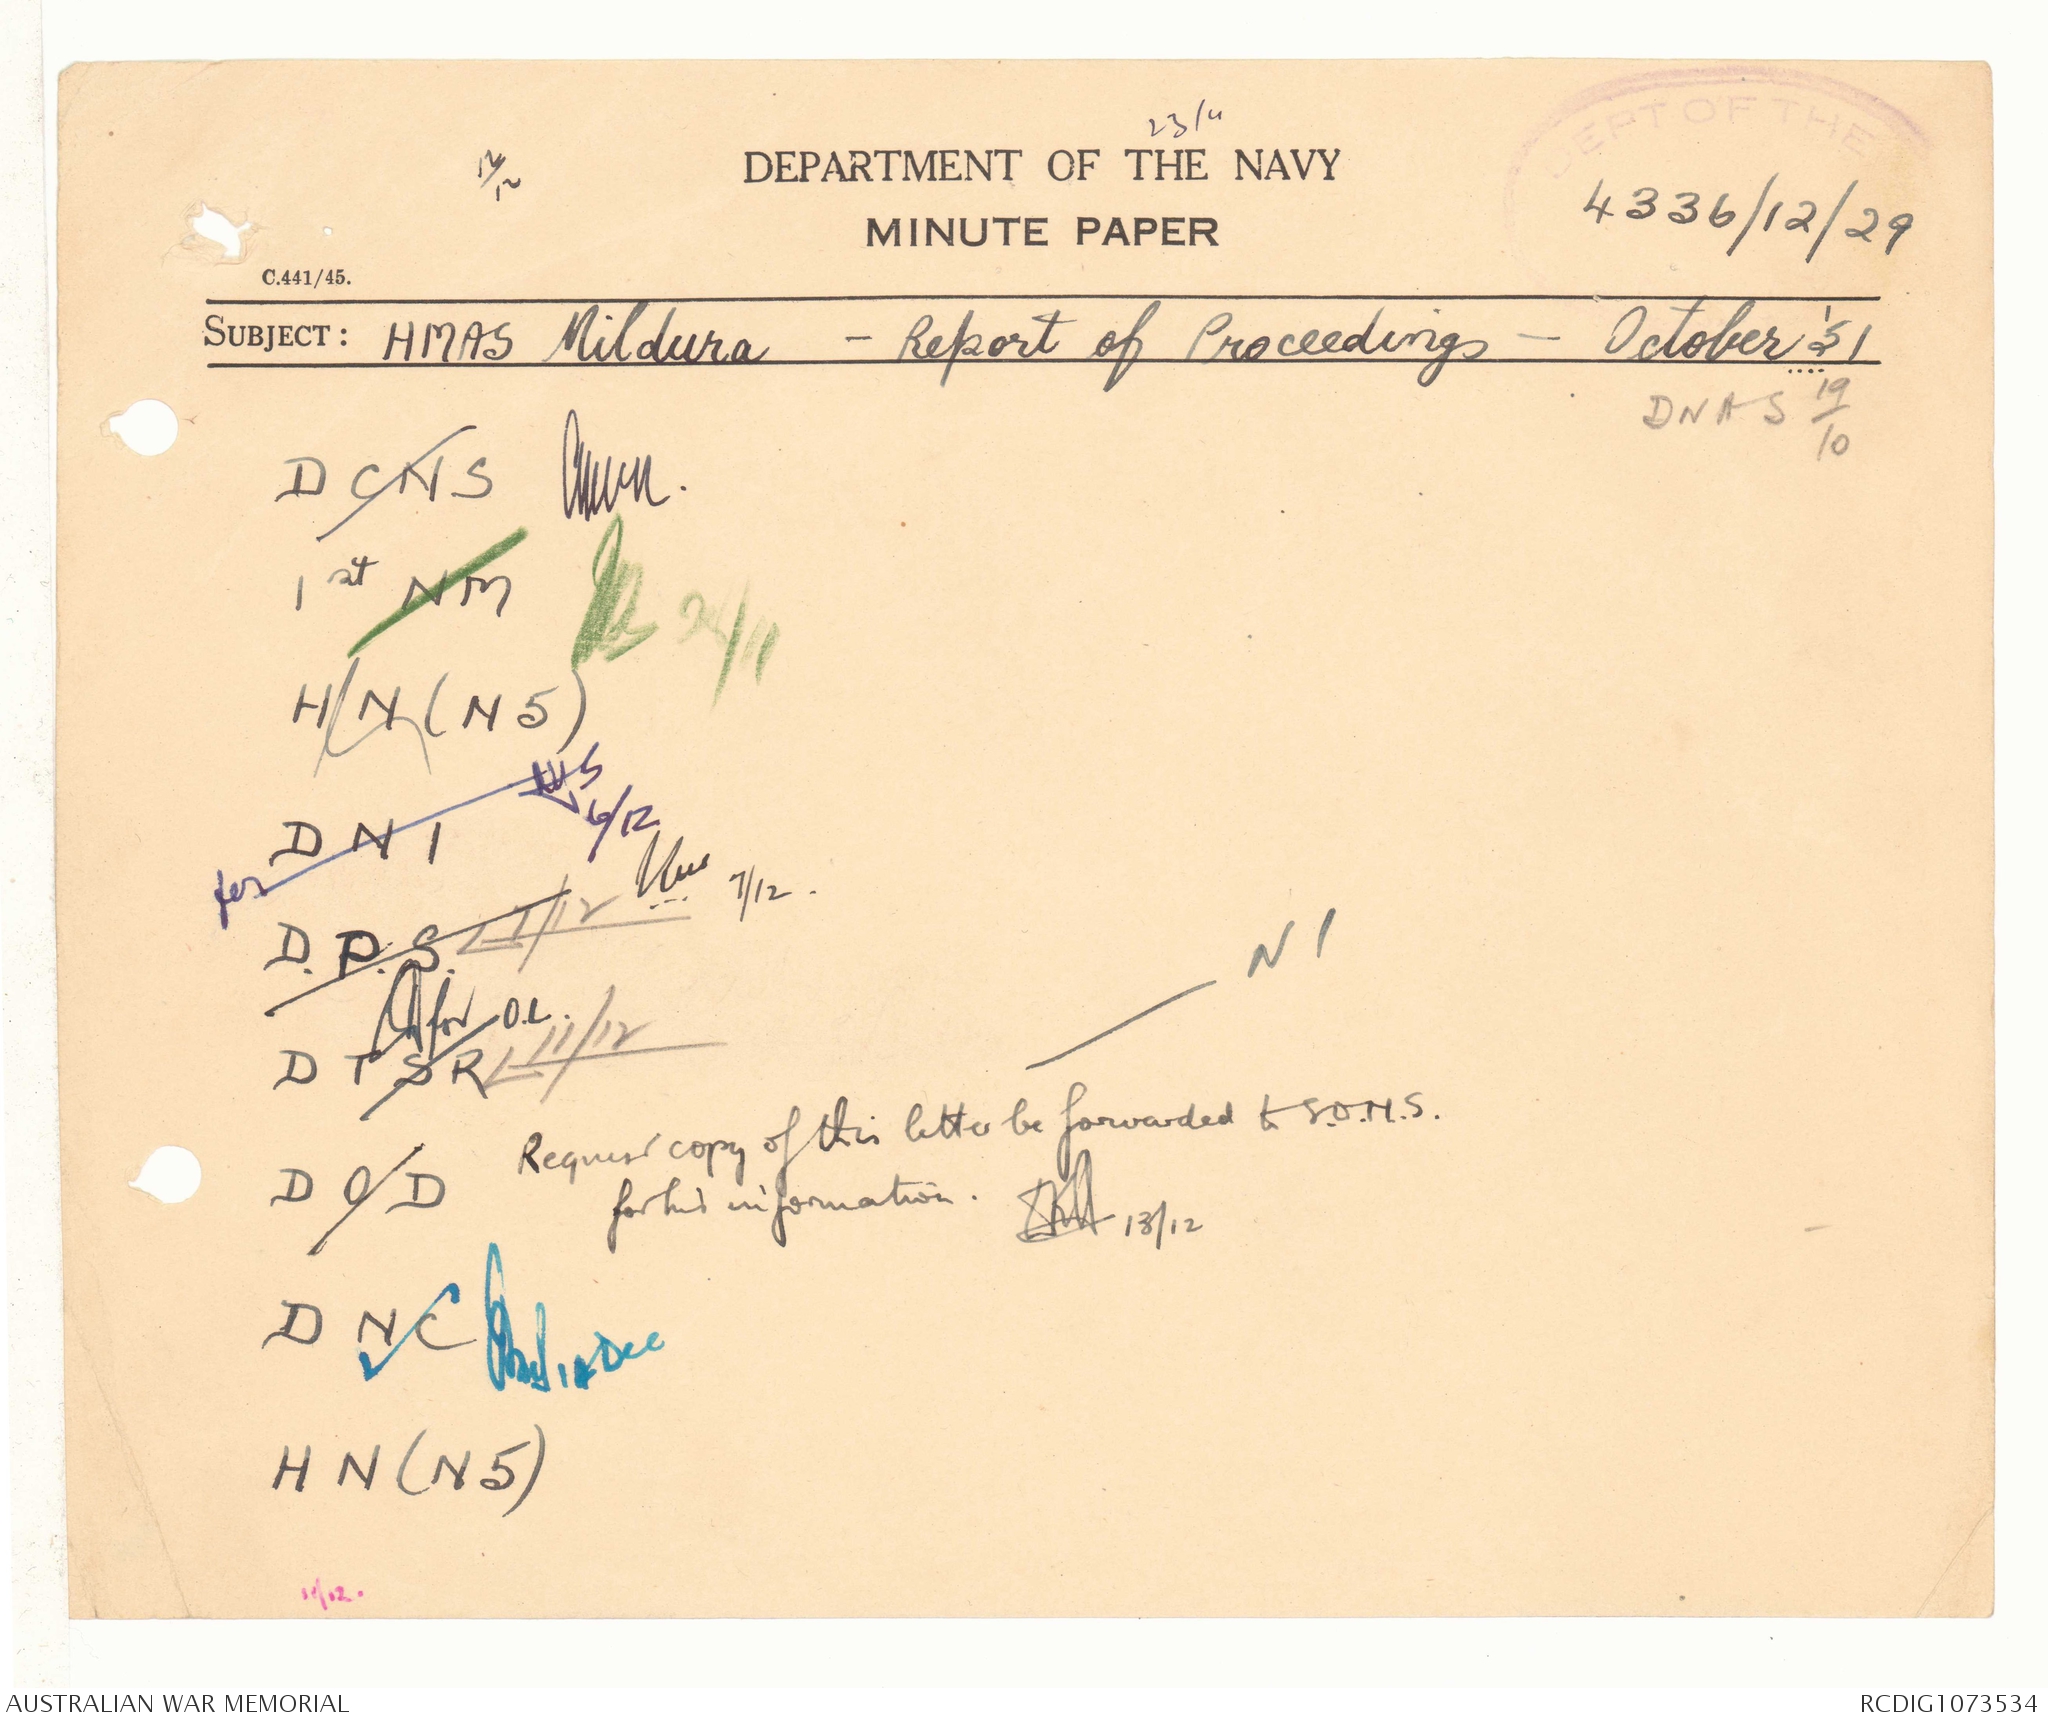 23/11
12/12
DEPARTMENT OF THE NAVY
MINUTE PAPER
DEPT OF THE
4336/12/29
C.441/45.
SUBJECT: HMAS Mildura - Report of Proceedings - October '51
DNAS 19/10
DCNS
1st NM 24/11
HN (N5)
6/12
DNI
for
7/12.
D.P.S. 7/12
for D.L.
DTSR 11/12
NI
Request copy of this letter be forwarded to S.D.N.S.
DOD
for his information. 13/12
DNC Dec
HN (N5)
AUSTRALIAN WAR MEMORIAL
RCDIG1073534